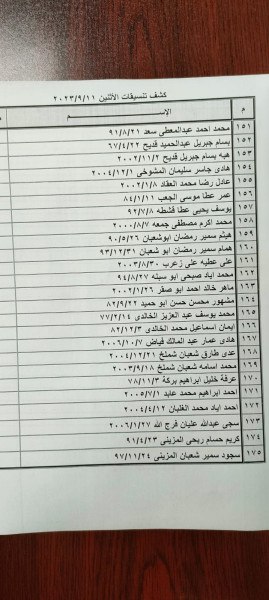 كشف تنسيقات الأثنين ٢٠٢٣/٩/١١
م الإســـــم
١٥١ محمد احمد عبدالمعطى سعد ٩١/٨/٢١
١٥٢ بسام جبريل عبدالحميد قديح ٦٧/٤/٢٢
١٥٣ هبه بسام جبريل قديح ٢٠٠٢/١١/٢
١٥٤ هادى جاسر سليمان المشوخى ٢٠٠٤/١٢/١
١٥٥ عادل رضا محمد العقاد ٢٠٠٢/١/٨
١٥٦ عمر عطا موسى الجعب ٨٤/١/١١
١٥٧ يوسف يحيى عطا قشطه ٩٢/٧/٨
١٥٨ محمد اكرم مصطفى جمعه ٢٠٠٠/٨/٧
١٥٩ هيثم سمير رمضان ابوشعبان ٩٠/٥/٢٦
١٦٠ همام سمير رمضان ابو شعبان ٩٣/١٢/٣١
١٦١ على عطيه على زعرب ٢٠٠٣/٨/٣٠
١٦٢ محمد اياد صبحى ابو سبله ٩٤/٨/٢٧
١٦٣ ماهر خالد احمد ابو صقر ٢٠٠٢/١/٢٦
١٦٤ مشهور محسن حسن ابو حميد ٨٢/٩/٢٢
١٦٥ محمد يوسف عبد العزيز الخالدى ٧٧/٢/١٤
١٦٦ ايمان اسماعيل محمد الخالدى ٨٢/١٢/٣
١٦٧ هادى عمار عبد المالك فياض ٢٠٠٦/١٠/٧
١٦٨ عدى طارق شعبان شملخ ٢٠٠٤/١٢/٢١
١٦٩ محمد اسامه شعبان شملخ ٢٠٠٣/٩/١٨
١٧٠ عرفة خليل ابراهيم بركة ٧٨/١١/٣
١٧١ احمد ابراهيم محمد عابد ٢٠٠٥/٧/١
١٧٢ احمد اياد محمد الغلبان ٢٠٠٤/٤/١٢
١٧٣ سجى عبدالله عليان فرج الله ٢٠٠٦/١/٢٧
١٧٤ كريم حسام ربحى المزينى ٩١/٤/٢٣
١٧٥ سجود سمير شعبان المزينى ٩٧/١١/٢٤